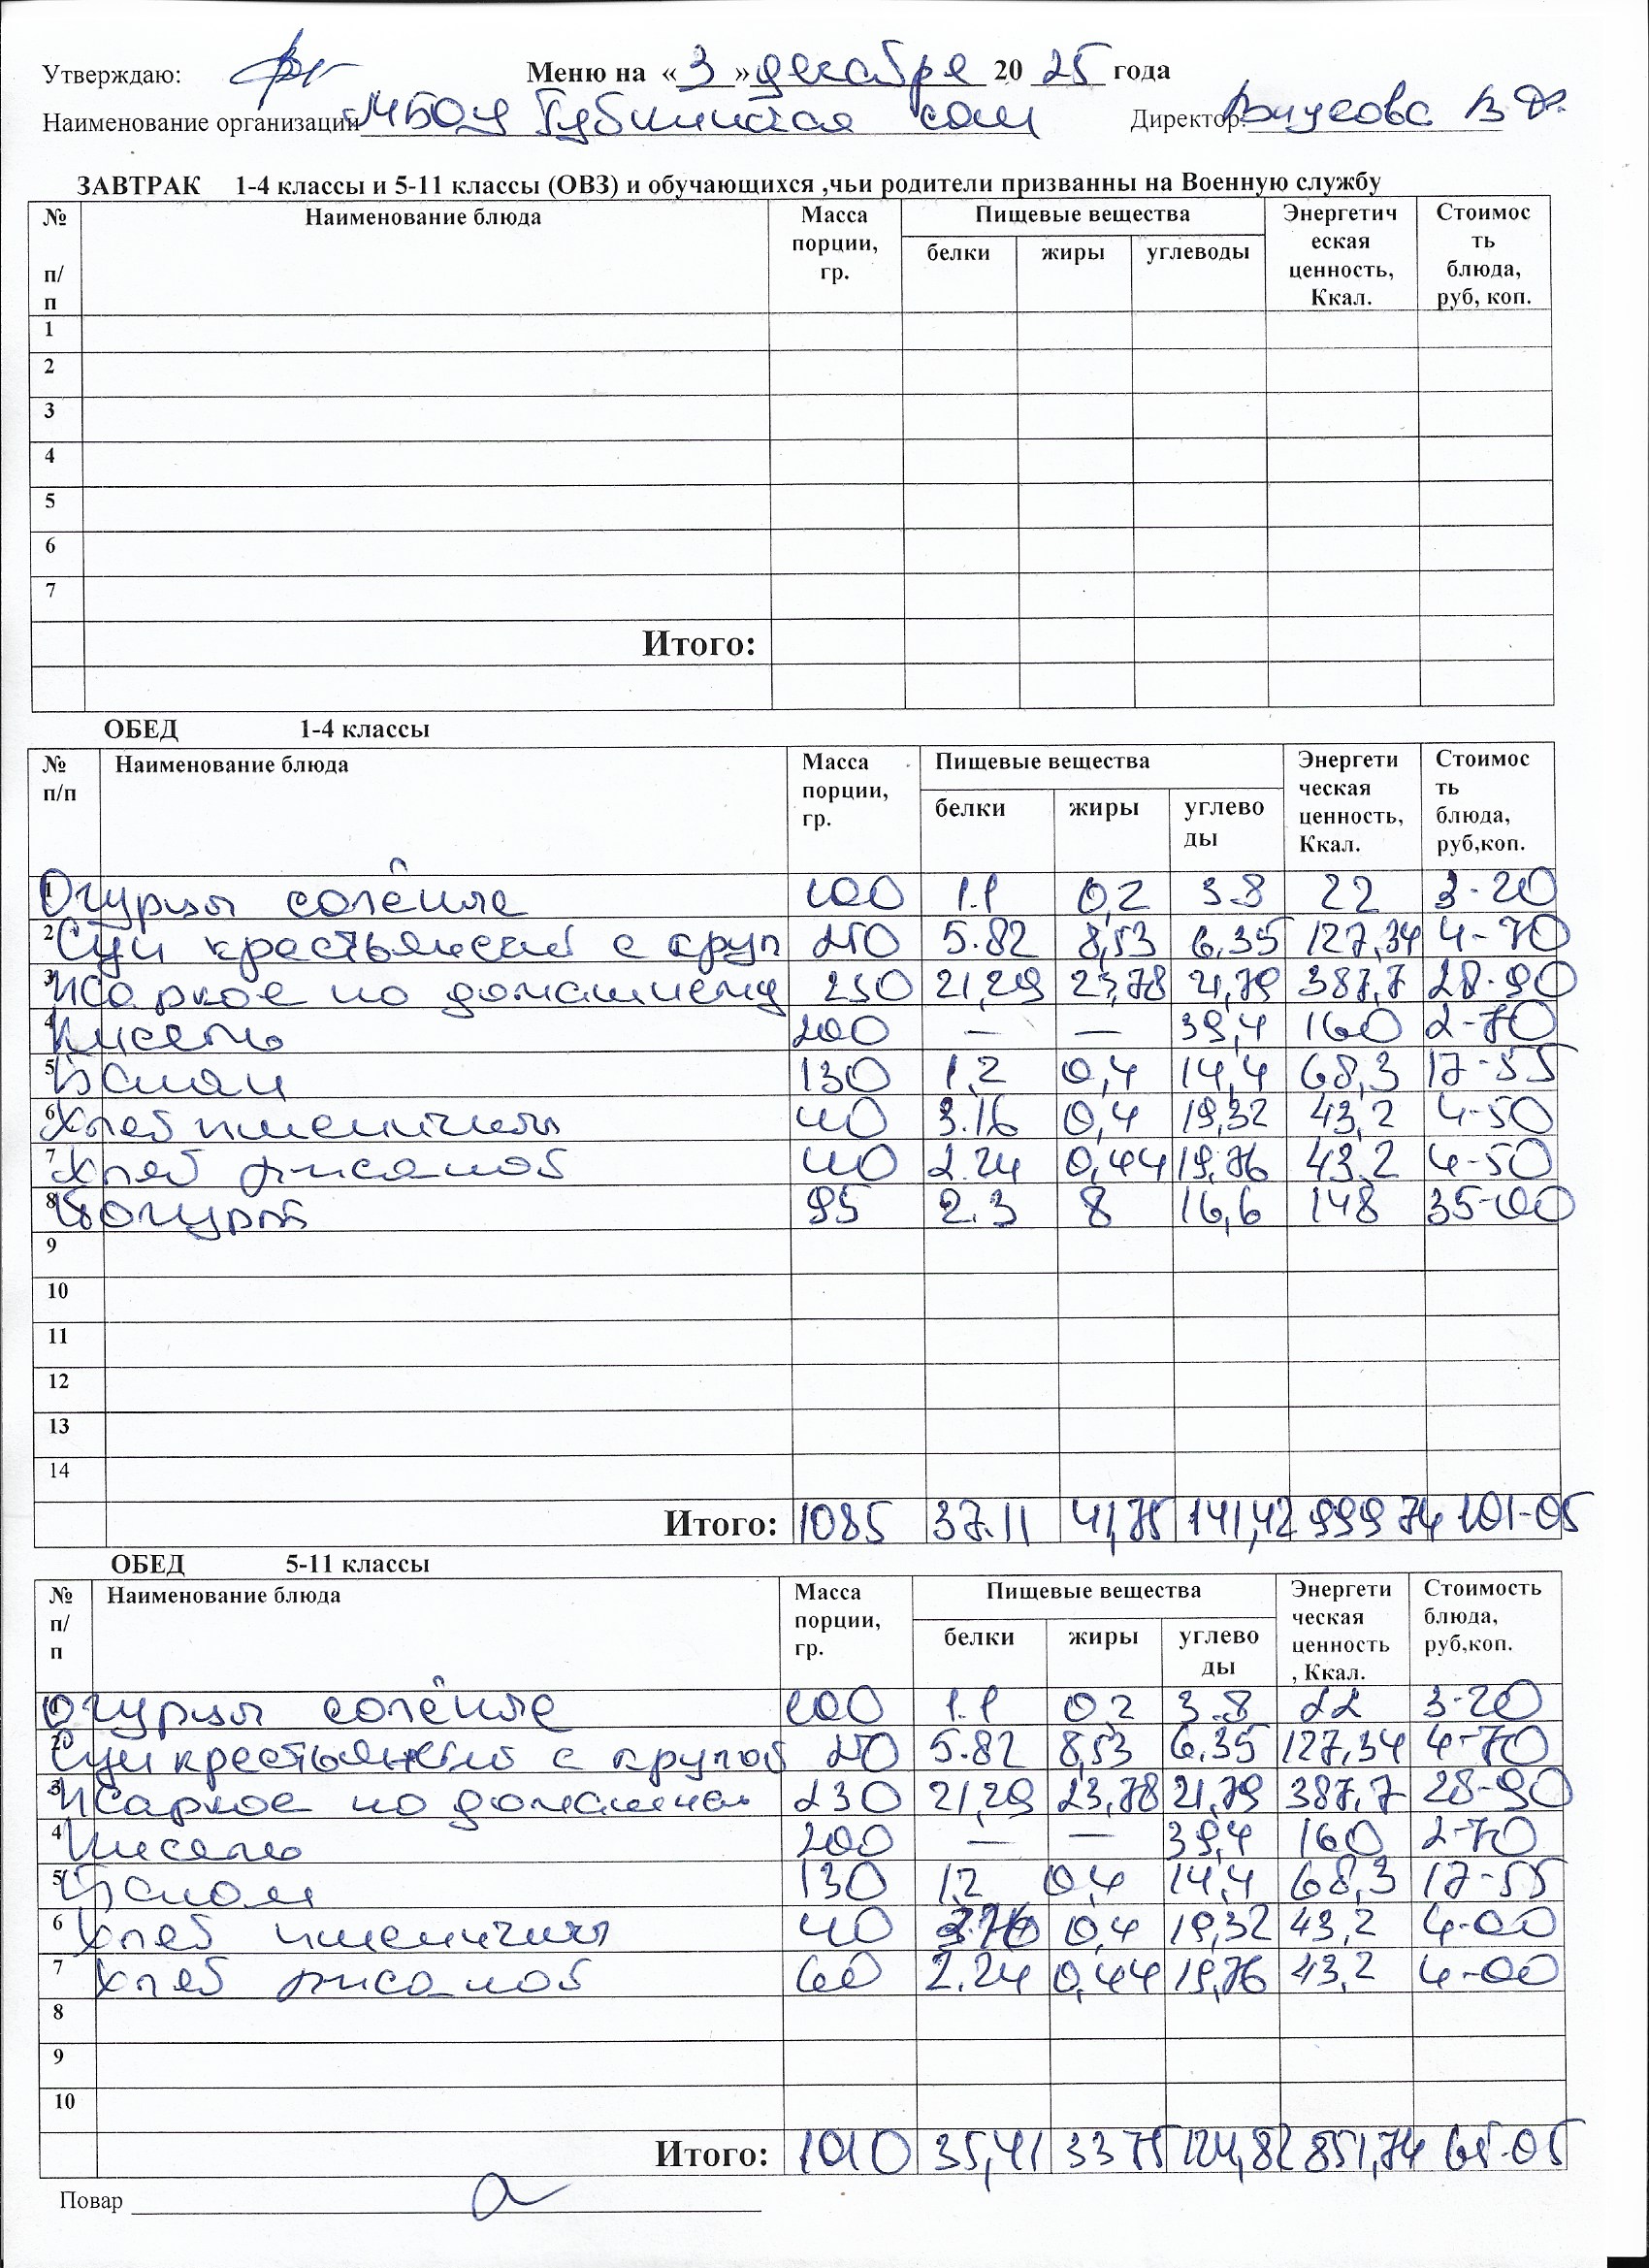 Утверждаю: Меню на «3» декабря 2025 года
Наименование организации МБОУ Губкинская сош Директор:
ЗАВТРАК 1-4 классы и 5-11 классы (ОВЗ) и обучающихся ,чьи родители призванны на Военную службу
№ п/п Наименование блюда Масса порции, гр. Пищевые вещества Энергетическая ценность, Ккал. Стоимость блюда, руб, коп.
белки жиры углеводы
1
2
3
4
5
6
7
Итого:
ОБЕД 1-4 классы
№ п/п Наименование блюда Масса порции, гр. Пищевые вещества Энергетическая ценность, Ккал. Стоимость блюда, руб,коп.
белки жиры углеводы
1 Огурцы солёные 100 1.1 0,2 3.8 22 3-20
2 Суп крестьянский с круп 250 5.82 8,53 6,35 127,34 4-70
3 Жаркое по домашнему 230 21,29 23,78 21,79 387,7 28-90
4 Кисель 200 — — 39,4 160 2-70
5 Банан 130 1,2 0,4 14,4 68,3 17-55
6 Хлеб пшеничны 40 3.16 0,4 19,32 43,2 4-50
7 Хлеб ржаной 40 2.24 0,44 19,76 43,2 4-50
8 Йогурт 95 2.3 8 16,6 148 35-00
9
10
11
12
13
14
Итого: 1085 37.11 41,75 141,42 999 74 101-05
ОБЕД 5-11 классы
№ п/п Наименование блюда Масса порции, гр. Пищевые вещества Энергетическая ценность, Ккал. Стоимость блюда, руб,коп.
белки жиры углеводы
1 Огурцы солёные 100 1.1 0,2 3.8 22 3-20
2 Суп крестьянский с крупой 250 5.82 8,53 6,35 127,34 4-70
3 Жаркое по домашнем 230 21,29 23,78 21,79 387,7 28-90
4 Кисель 200 — — 39,4 160 2-70
5 Банан 130 1,2 0,4 14,4 68,3 17-55
6 Хлеб пшеничны 40 0,4 19,32 43,2 4-00
7 Хлеб ржаной 60 2.24 0,44 19,76 43,2 4-00
8
9
10
Итого: 1010 35,41 33 75 124,82 851,74 65-05
Повар